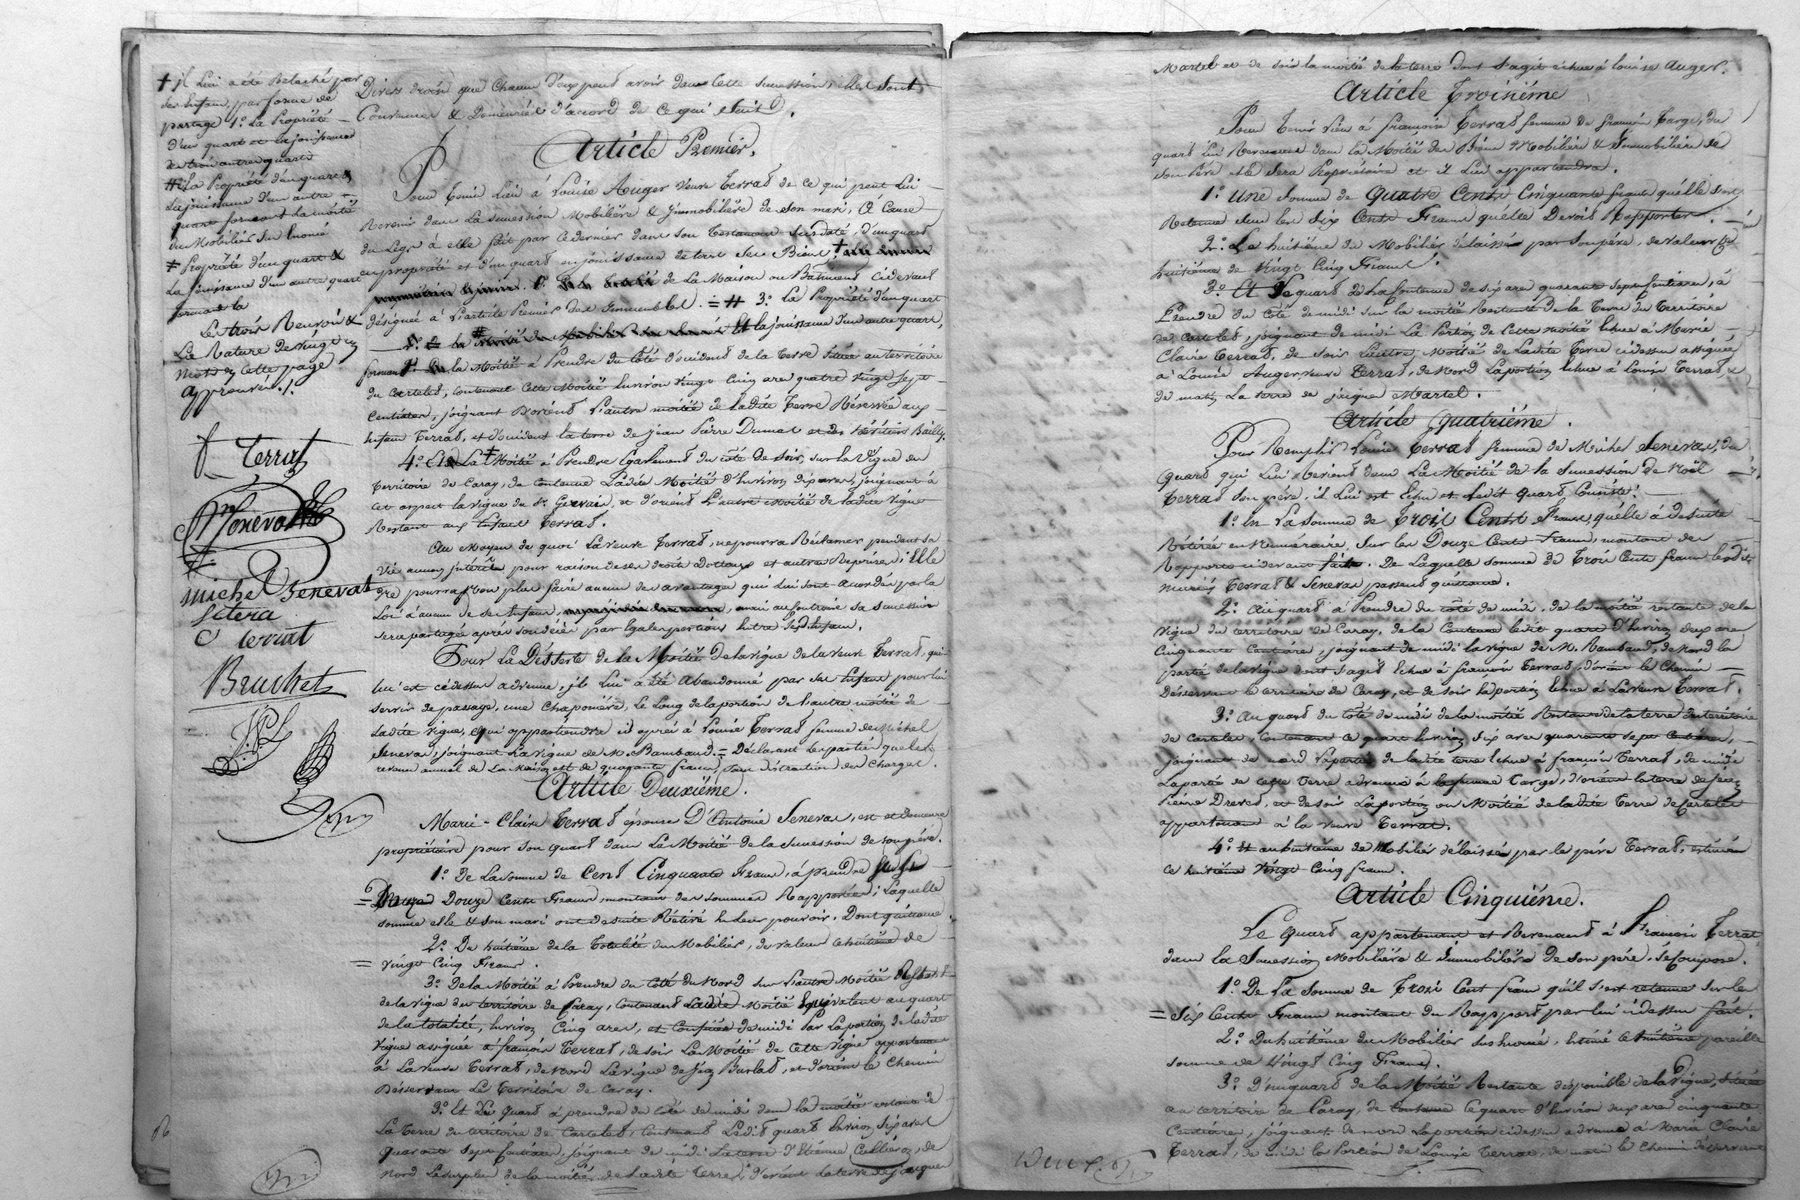 + il lui a été relaché par
ses enfans, par forme de
partage 1º La Propriété
d'un quart et la jouissance
de trois autres quarts
# La Propriété d'un quart &
La jouissance d'un autre
quart formant la moitié
du Mobilier sus énoncé
≠ Propriété d'un quart &
La jouissance d'un autre quart
formant la
Les trois Renvois &
La Rature de vingt
mots en cette page
approuvés ./.
Terrat
Senevat
michel Senevat
terrat
Bruchet
Divers droits que Chacun d'eux peut avoir dans Cette succession, elles sont
Convenues & Demeurées d'accord de Ce qui suit.
Article Premier.
Pour tenir lieu à Louise Auger Veuve Terrat de ce qui peut lui
Revenir dans La succession Mobilière & Immobilière de son mari, à Cause
du Legs à elle fait par ce dernier dans son Testament susdaté, d'un quart
en propriété et d'un quart en jouissance de tous ses Biens +
de La Maison ou Batiment ci devant
désignée à L'article Premier des Immeubles. = # 3º La Propriété d'un quart
Et la jouissance d'un autre quart,
formant la Moitié à Prendre du Côté d'occident de la Terre située au territoire
du Cartelet, contenant Cette Moitié environ Vingt Cinq ares quatre vingt sept
Centiares, joignant D'orient L'autre moitié de ladite Terre Réservée aux
enfans Terrat, et d'occident la terre de Jean Pierre Dumas et des héritiers Bailly.
4º La Moitié à Prendre également du Côté de soir, sur la Vigne du
Territoire de Caray, de contenue Ladite Moitié d'environ dix ares, joignant à
cet aspect la vigne du Sr. Gervais, et d'orient L'autre Moitié de ladite vigne
Restant aux enfans Terrat.
Au Moyen de quoi La Veuve Terrat, ne pourra Réclamer pendant sa
Vie aucun intérêt pour raison de ses droits Dotaux et autres Reprises; Elle
ne pourra Non plus faire aucun des avantages qui lui sont accordés par la
Loi à aucun de ses enfans, mais au contraire sa succession
sera partagée après son décès par Egales portions entre ses enfans.
Pour La Désserte de la Moitié de la vigne de la Veuve Terrat, qui
lui est ci dessus advenue, il lui a été abandonné par ses enfans pour lui
servir de passage, une Chaponière, Le Long de la portion de l'autre moitié de
Ladite vigne, qui appartiendra ci après à Louise Terrat femme de Michel
Senevas, joignant La vigne de M. Rambaud. = Déclarant les parties que le
revenu annuel de La Maison est de quarante francs, sans distraction des Charges.
Article Deuxième.
Marie-Claire Terrat épouse D'Antoine Senevas, est et demeure
propriétaire pour son quart dans La Moitié de la succession de son père.
1º De La somme de Cent Cinquante Francs, à prendre sur les
= Douze Cents Francs, montant des sommes Rapportées; Laquelle
somme elle & son mari ont de suite Rétiré en leur pouvoir. Dont quittance.
2º De huitième de la totalité du Mobilier, de valeur ce huitième de
= vingt Cinq Francs.
3º De la Moitié à Prendre du Côté du Nord sur L'autre Moitié Restant
de la vigne du territoire de Caray, contenant Ladite Moitié Equivalent au quart
de la totalité, environ Cinq ares, et confinée de midi Par La portion de ladite
Vigne assignée à françois Terrat, de soir La Moitié de Cette Vigne appartenant
à La Veuve Terrat, de Nord La vigne de Jean Burlat, et d'orient le Chemin
Desservant Le Territoire de Caray.
3º Et Le quart à prendre du Côté de midi dans la moitié restante de
La Terre du territoire de Cartelet, contenant Ledit quart environ six ares
Quarante sept Centiares, joignant de midi La terre d'Etienne Cellière, de
Nord Le surplus de la moitié de Ladite Terre, d'orient La terre de Jacques
Martel et de soir la moitié de la terre dont s'agit échue à Louise Auger.
Article Troisième
Pour Tenir Lieu à françoise Terrat femme de françois Farge, du
quart lui Revenant dans la Moitié des Biens Mobiliers & Immobiliers de
son père elle sera Propriétaire et il Lui appartiendra.
1º Une Somme de Quatre Cents Cinquante francs qu'elle s'est
Retenue sur les Six Cents Francs qu'elle Devoit Rapporter.
2º Le huitième du Mobilier délaissé par son père, de valeur ce
huitième de Vingt Cinq Francs.
3º Le quart de la Contenue de six ares quarante sept Centiares, à
Prendre du Côté de midi sur la moitié Restante de la Terre du Territoire
de Cartelet, joignant de midi La Portion de Cette moitié échue à Marie
Claire Terrat, de soir l'autre Moitié de Ladite Terre ci dessus assignée
à Louise Auger veuve Terrat, de Nord La portion échue à Louise Terrat &
de matin La terre de Jacques Martel.
Article Quatrième.
Pour Remplir Louise Terrat femme de Michel Senevas, du
Quart qui Lui Revient dans La Moitié de la succession de Noël
Terrat son père, il Lui est échu et ledit Quart Consiste:
1º En La somme de Trois Cents Francs, qu'elle a de suite
Rétirée en Numéraire, Sur les Douze Cents Francs montant des
Rapports ci devant faits. De Laquelle somme de Trois Cents francs les dits
mariés Terrat & Senevas passent quittance.
2º Au quart à Prendre du côté de midi, de la moitié restante de la
Vigne du territoire de Caray, de la Contenue ledit quart d'environ deux ares
Cinquante Centiares, joignant de midi la vigne de M. Rambaud, de Nord la
partie de la vigne dont s'agit échue à françois Terrat, d'orient le Chemin
Desservant le territoire de Caray, et de soir la portion échue à La Veuve Terrat.
3º Au quart du Côté de midi de la moitié Restante de la terre du territoire
de Cartelet, Contenant ce quart environ six ares quarante sept Centiares,
joignant de Nord La partie de ladite terre échue à françois Terrat, de midi
La partie de cette Terre advenue à la femme Farge, d'orient la terre de Jean
Pierre Drevet, et de soir La portion ou Moitié de ladite Terre de Cartelet
appartenant à la veuve Terrat.
4º Et au huitième du Mobilier délaissé par le père Terrat, estimé
ce huitième Vingt Cinq francs.
Article Cinquième.
Le Quart appartenant et Revenant à François Terrat
dans La Succession Mobilière & Immobilière de son père, se Compose.
1º De La somme de Trois Cents francs qu'il s'est retenue sur les
= Six Cents Francs montant du Rapport par lui ci dessus fait.
2º Du huitième du Mobilier sus énoncé, estimé ce huitième pareille
somme de Vingt Cinq Francs.
3º D'un quart de la Moitié Restante disponible de la Vigne, située
au territoire de Caray, de Contenue Ce quart d'environ deux ares cinquante
Centiares, joignant de nord La portion ci dessus advenue à Marie Claire
Terrat, de midi la Portion de Louise Terrat, de matin le Chemin desservant